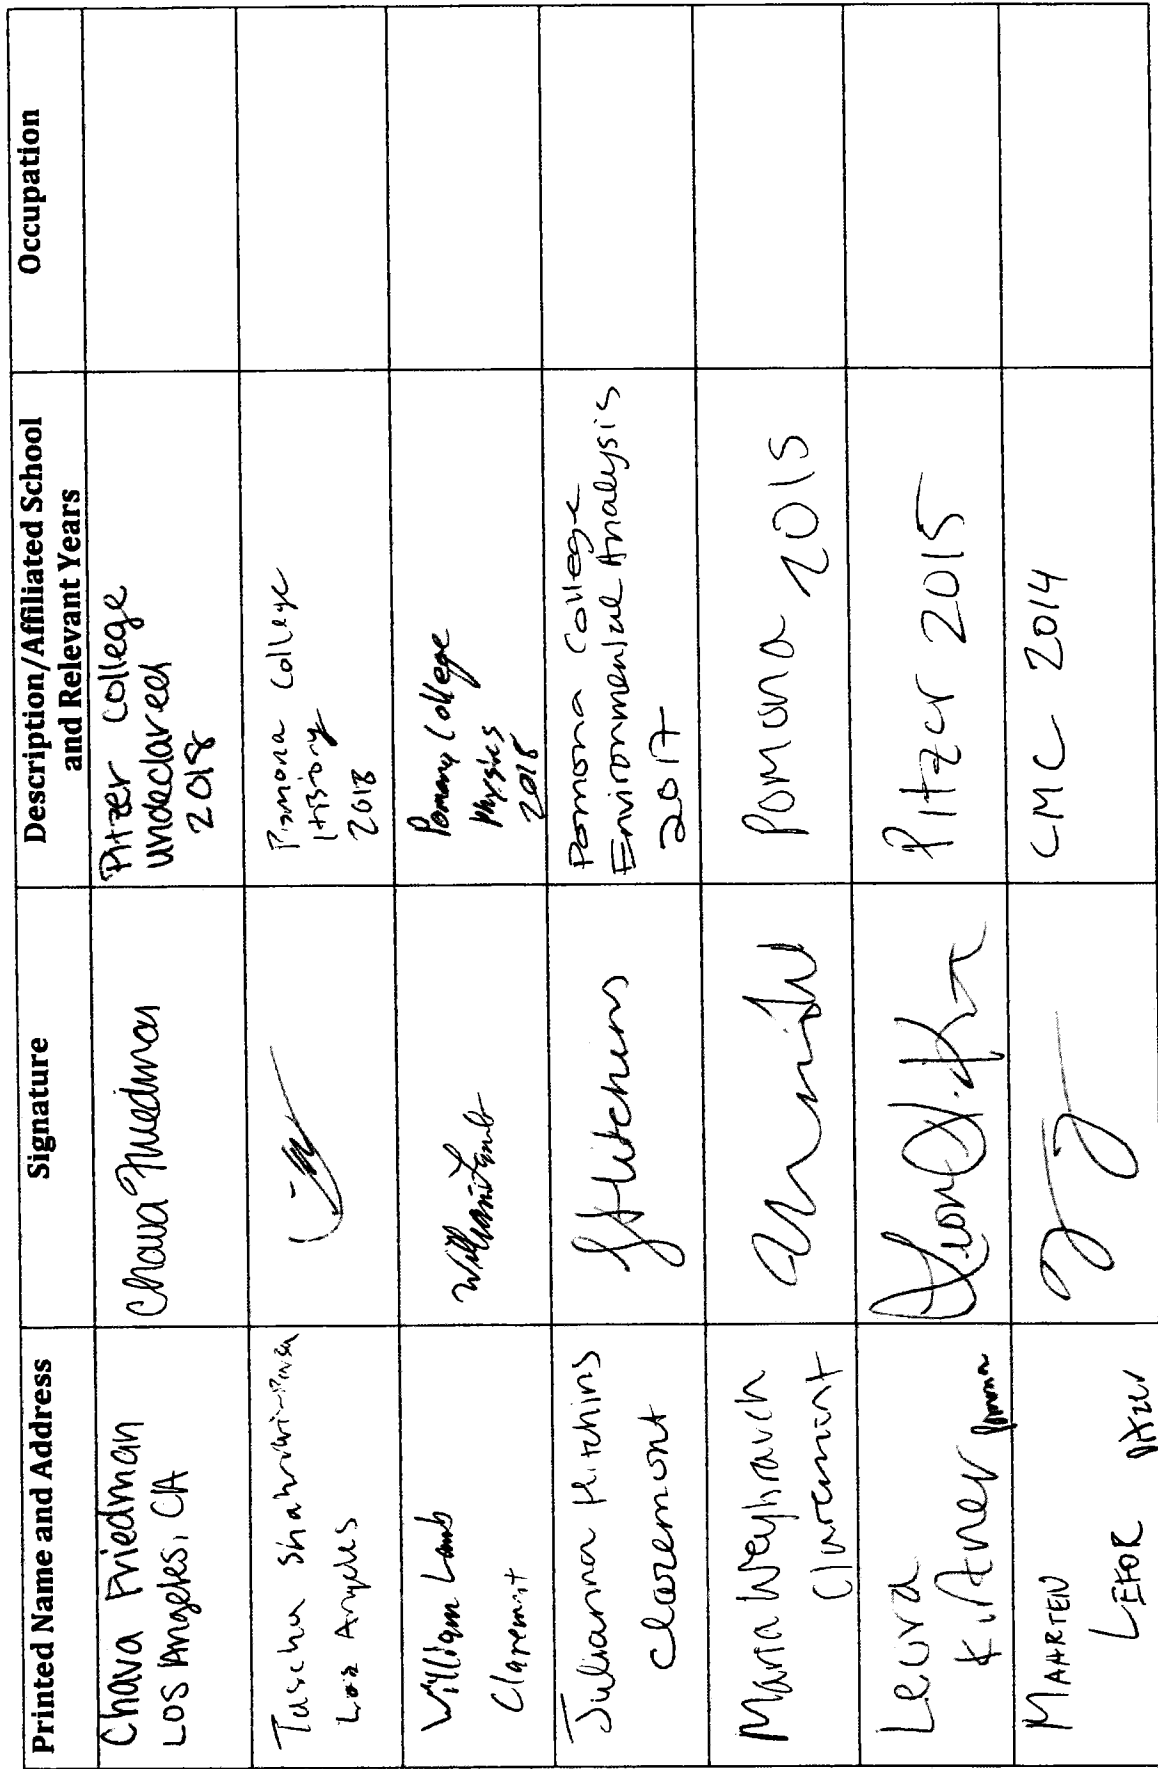 Printed Name and Address
Signature
Description/Affiliated School
and Relevant Years
Occupation
Chava Friedman
LOS Angeles, CA
Chava Friedman
Pitzer College
undeclared
2018
Tascha
Los Angeles
Pomona College
History
2018
William Lamb
Claremont
William Lamb
Pomona College
Physics
2018
Julianna Hitchins
Claremont
JHitchins
Pomona College
Environmental Analysis
2017
Maria Weyhrauch
Claremont
Pomona 2015
Leora
Kirtner
Pitzer 2015
MAARTEN
LEFOR
Pitzer
CMC 2014